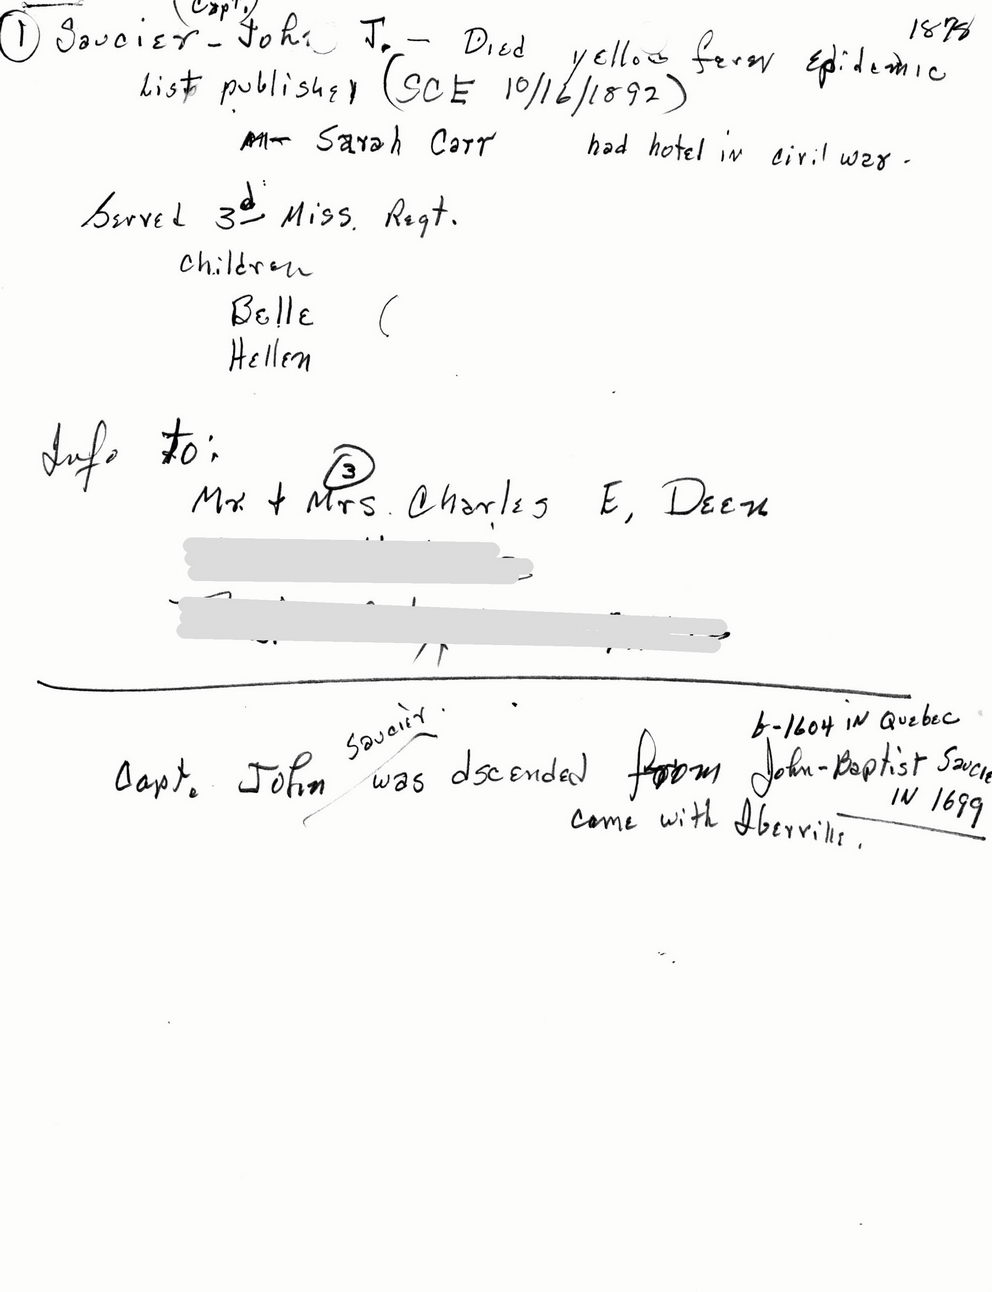 (Capt.)
① Saucier - John J. - Died yellow fever Epidemic 1878
List published (SCE 10/16/1892)
m- Sarah Carr had hotel in civil war.
Served 3d Miss. Regt.
Children
Belle (
Hellen
Info to:
③
Mr. + Mrs. Charles E, Deen
b-1604 in Quebec
Capt. John Saucier was dscended from John-Baptist Saucie
IN 1699
came with Iberville.